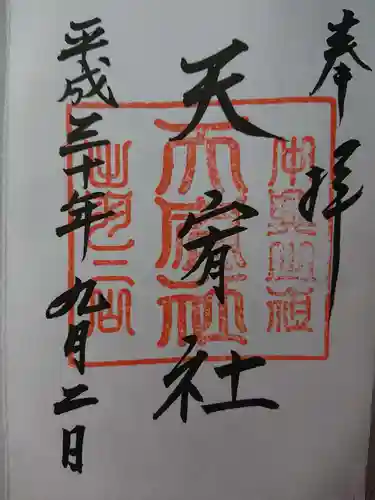 奉拝
天宥社
平成三十年九月二日